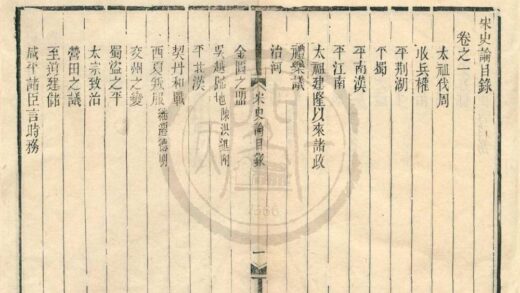 宋史論目錄
卷之一
太祖代周
收兵權
平荆湖
平蜀
平南漢
平江南
太祖建隆以來諸政
禮樂議
治河
宋史論目錄
一
金匱之盟
吳越歸地 陳洪進附
平北漢
契丹和戰
西夏叛服 繼遷德明
交州之變
蜀盜之平
太宗致治
營田之議
至道建儲
咸平諸臣言時務